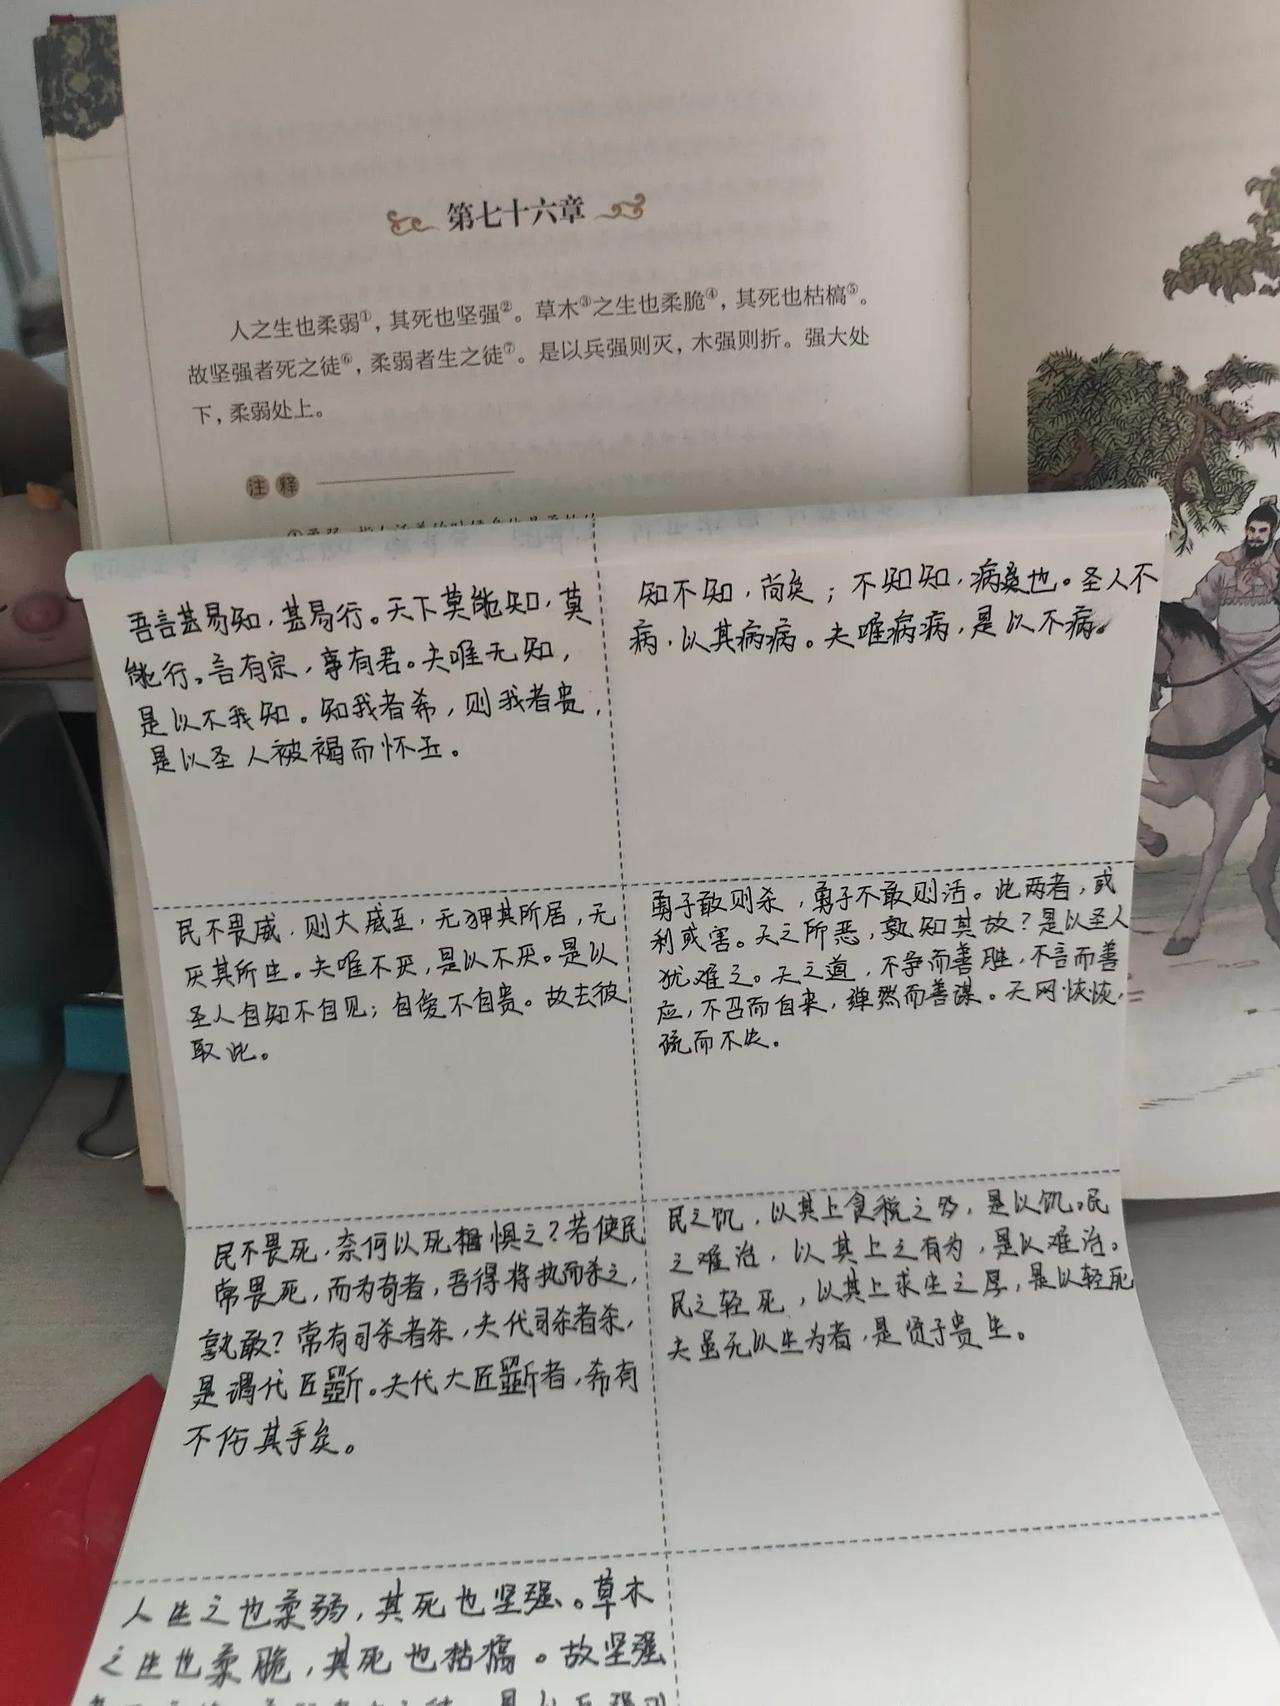 第七十六章
人之生也柔弱①，其死也坚强②。草木③之生也柔脆④，其死也枯槁⑤。
故坚强者死之徒⑥，柔弱者生之徒⑦。是以兵强则灭，木强则折。强大处
下，柔弱处上。
注释
吾言甚易知，甚易行。天下莫能知，莫
能行。言有宗，事有君。夫唯无知，
是以不我知。知我者希，则我者贵，
是以圣人被褐而怀玉。
知不知，尚矣；不知知，病也。圣人不
病，以其病病。夫唯病病，是以不病。
民不畏威，则大威至，无狎其所居，无
厌其所生。夫唯不厌，是以不厌。是以
圣人自知不自见；自爱不自贵。故去彼
取此。
勇于敢则杀，勇于不敢则活。此两者，或
利或害。天之所恶，孰知其故？是以圣人
犹难之。天之道，不争而善胜，不言而善
应，不召而自来，繟然而善谋。天网恢恢，
疏而不失。
民不畏死，奈何以死惧之？若使民
常畏死，而为奇者，吾得将执而杀之，
孰敢？常有司杀者杀，夫代司杀者杀，
是谓代匠斲。夫代大匠斲者，希有
不伤其手矣。
民之饥，以其上食税之多，是以饥。民
之难治，以其上之有为，是以难治。
民之轻死，以其上求生之厚，是以轻死
夫虽无以生为者，是贤于贵生。
人生之也柔弱，其死也坚强。草木
之生也柔脆，其死也枯槁。故坚强